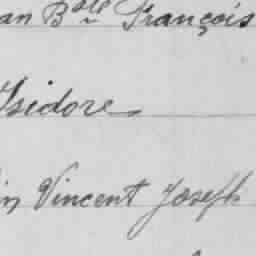 an Bte François
Isidore
in Vincent Joseph